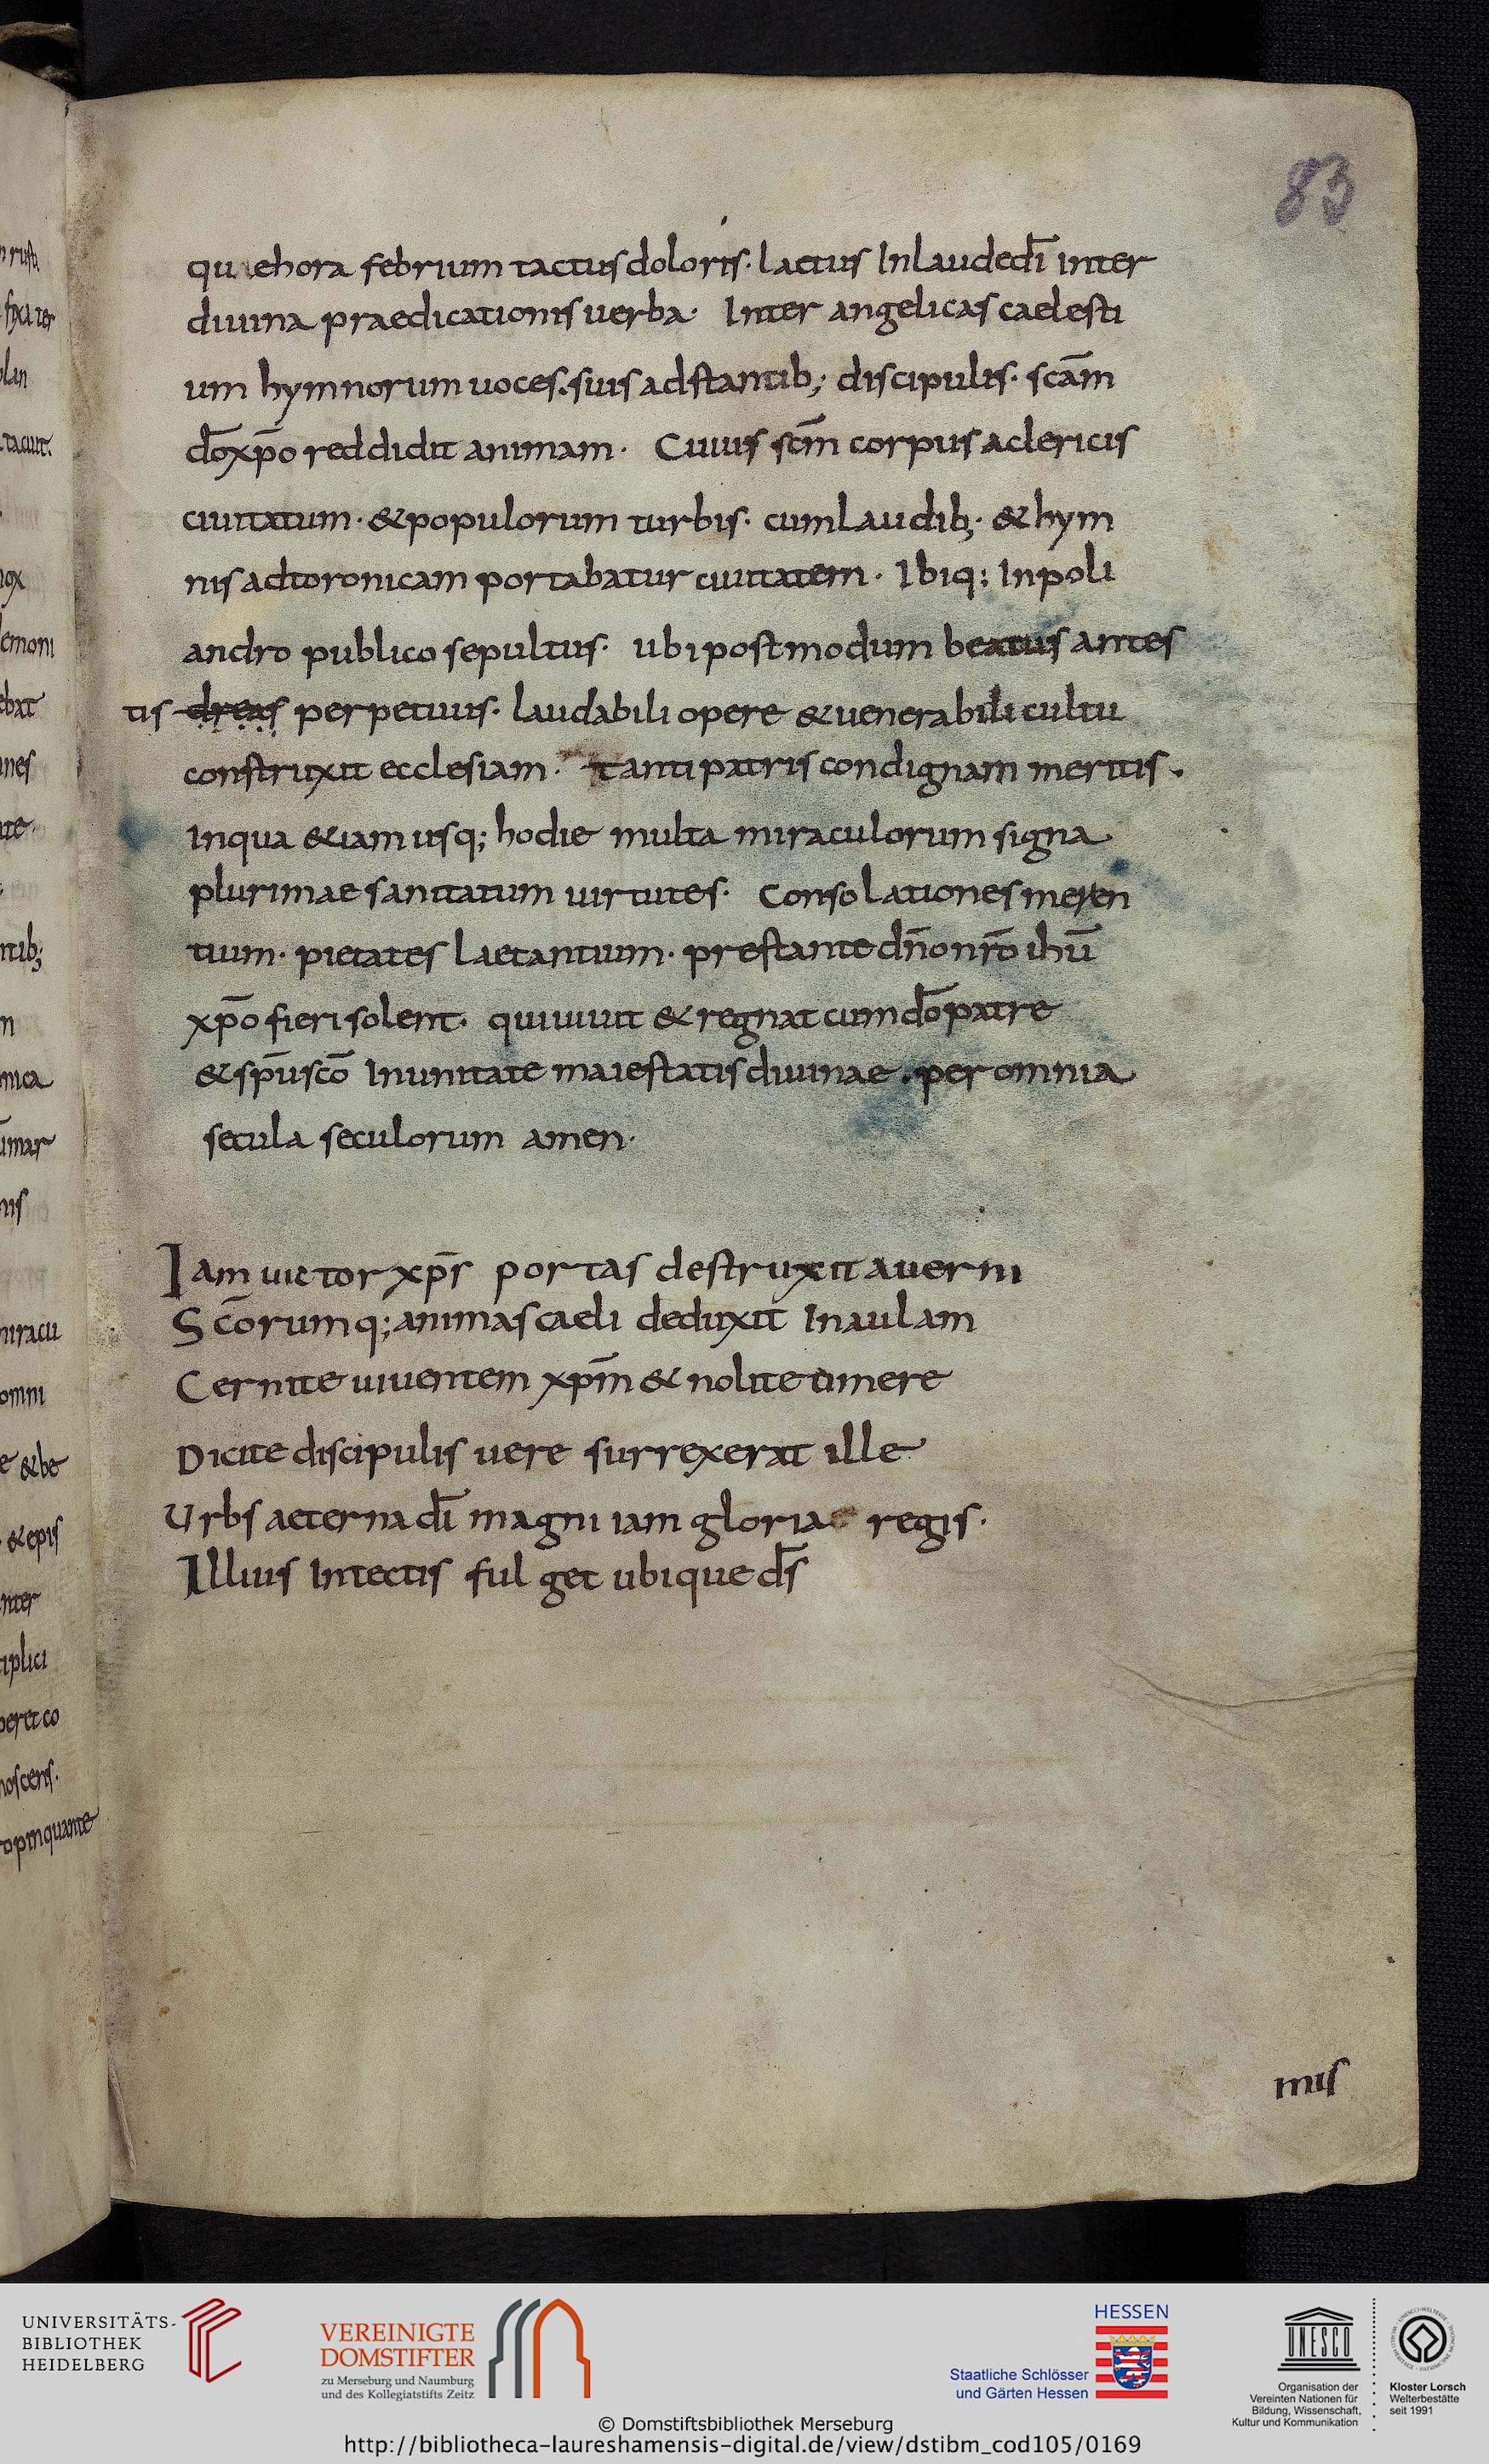 83
qu ehora febrium tactus doloris· laetus Inlaudedi̅ inter
diuina praedicationis uerba· Inter angelicas caelesti
um hymnorum uoces. suis adstantib; discipulis· sc̅am
do̅xp̅o reddidit animam· Cuius sc̅m corpus aclericis
ciuitatum· &populorum turbis· cumLaudib;· &hym
nis adtoronicam portabatur ciuitatem· Ibiq; Inpoli
andro publico sepultus· ubi postmodum beatus antes
tis dreas perpetuus· laudabili opere &uenerabili cultu
construxit ecclesiam· tanti patris condignam meritis·
Inqua &iam usq; hodie multa miraculorum signa
plurimae sanitatum uirtutes· Consolationes meren
tium· pietates laetantium· prestante dn̅onr̅o ihu̅
xp̅o fieri solent· qui uiuit & regnat cum do̅ patre
& sp̅usco̅ Inunitate maiestatis diuinae· per omnia
secula seculorum amen·
Iam uictor xp̅s portas destruxit auerni
Sc̅orumq; animas caeli deduxit Inaulam
Cernite uiuentem xp̅m & nolite timere
Dicite discipulis uere surrexerat ille
Urbs aeterna di̅ magni iam gloria regis·
Illius Intectis fulget ubique ds̅
mis
n rusti
fixa ter
plan
tacuit·
nox
demoni
ebat
nes
ntib;
n
nica
umar
nis
miracu
omni
e &be
&epis
nter
iplici
peret co
noscens·
ropinquante
UNIVERSITÄTS-
BIBLIOTHEK
HEIDELBERG
VEREINIGTE
DOMSTIFTER
zu Merseburg und Naumburg
und des Kollegiatstifts Zeitz
HESSEN
Staatliche Schlösser
und Gärten Hessen
UNESCO
Organisation der
Vereinten Nationen für
Bildung, Wissenschaft,
Kultur und Kommunikation
Kloster Lorsch
Welterbestätte
seit 1991
© Domstiftsbibliothek Merseburg
http://bibliotheca-laureshamensis-digital.de/view/dstibm_cod105/0169